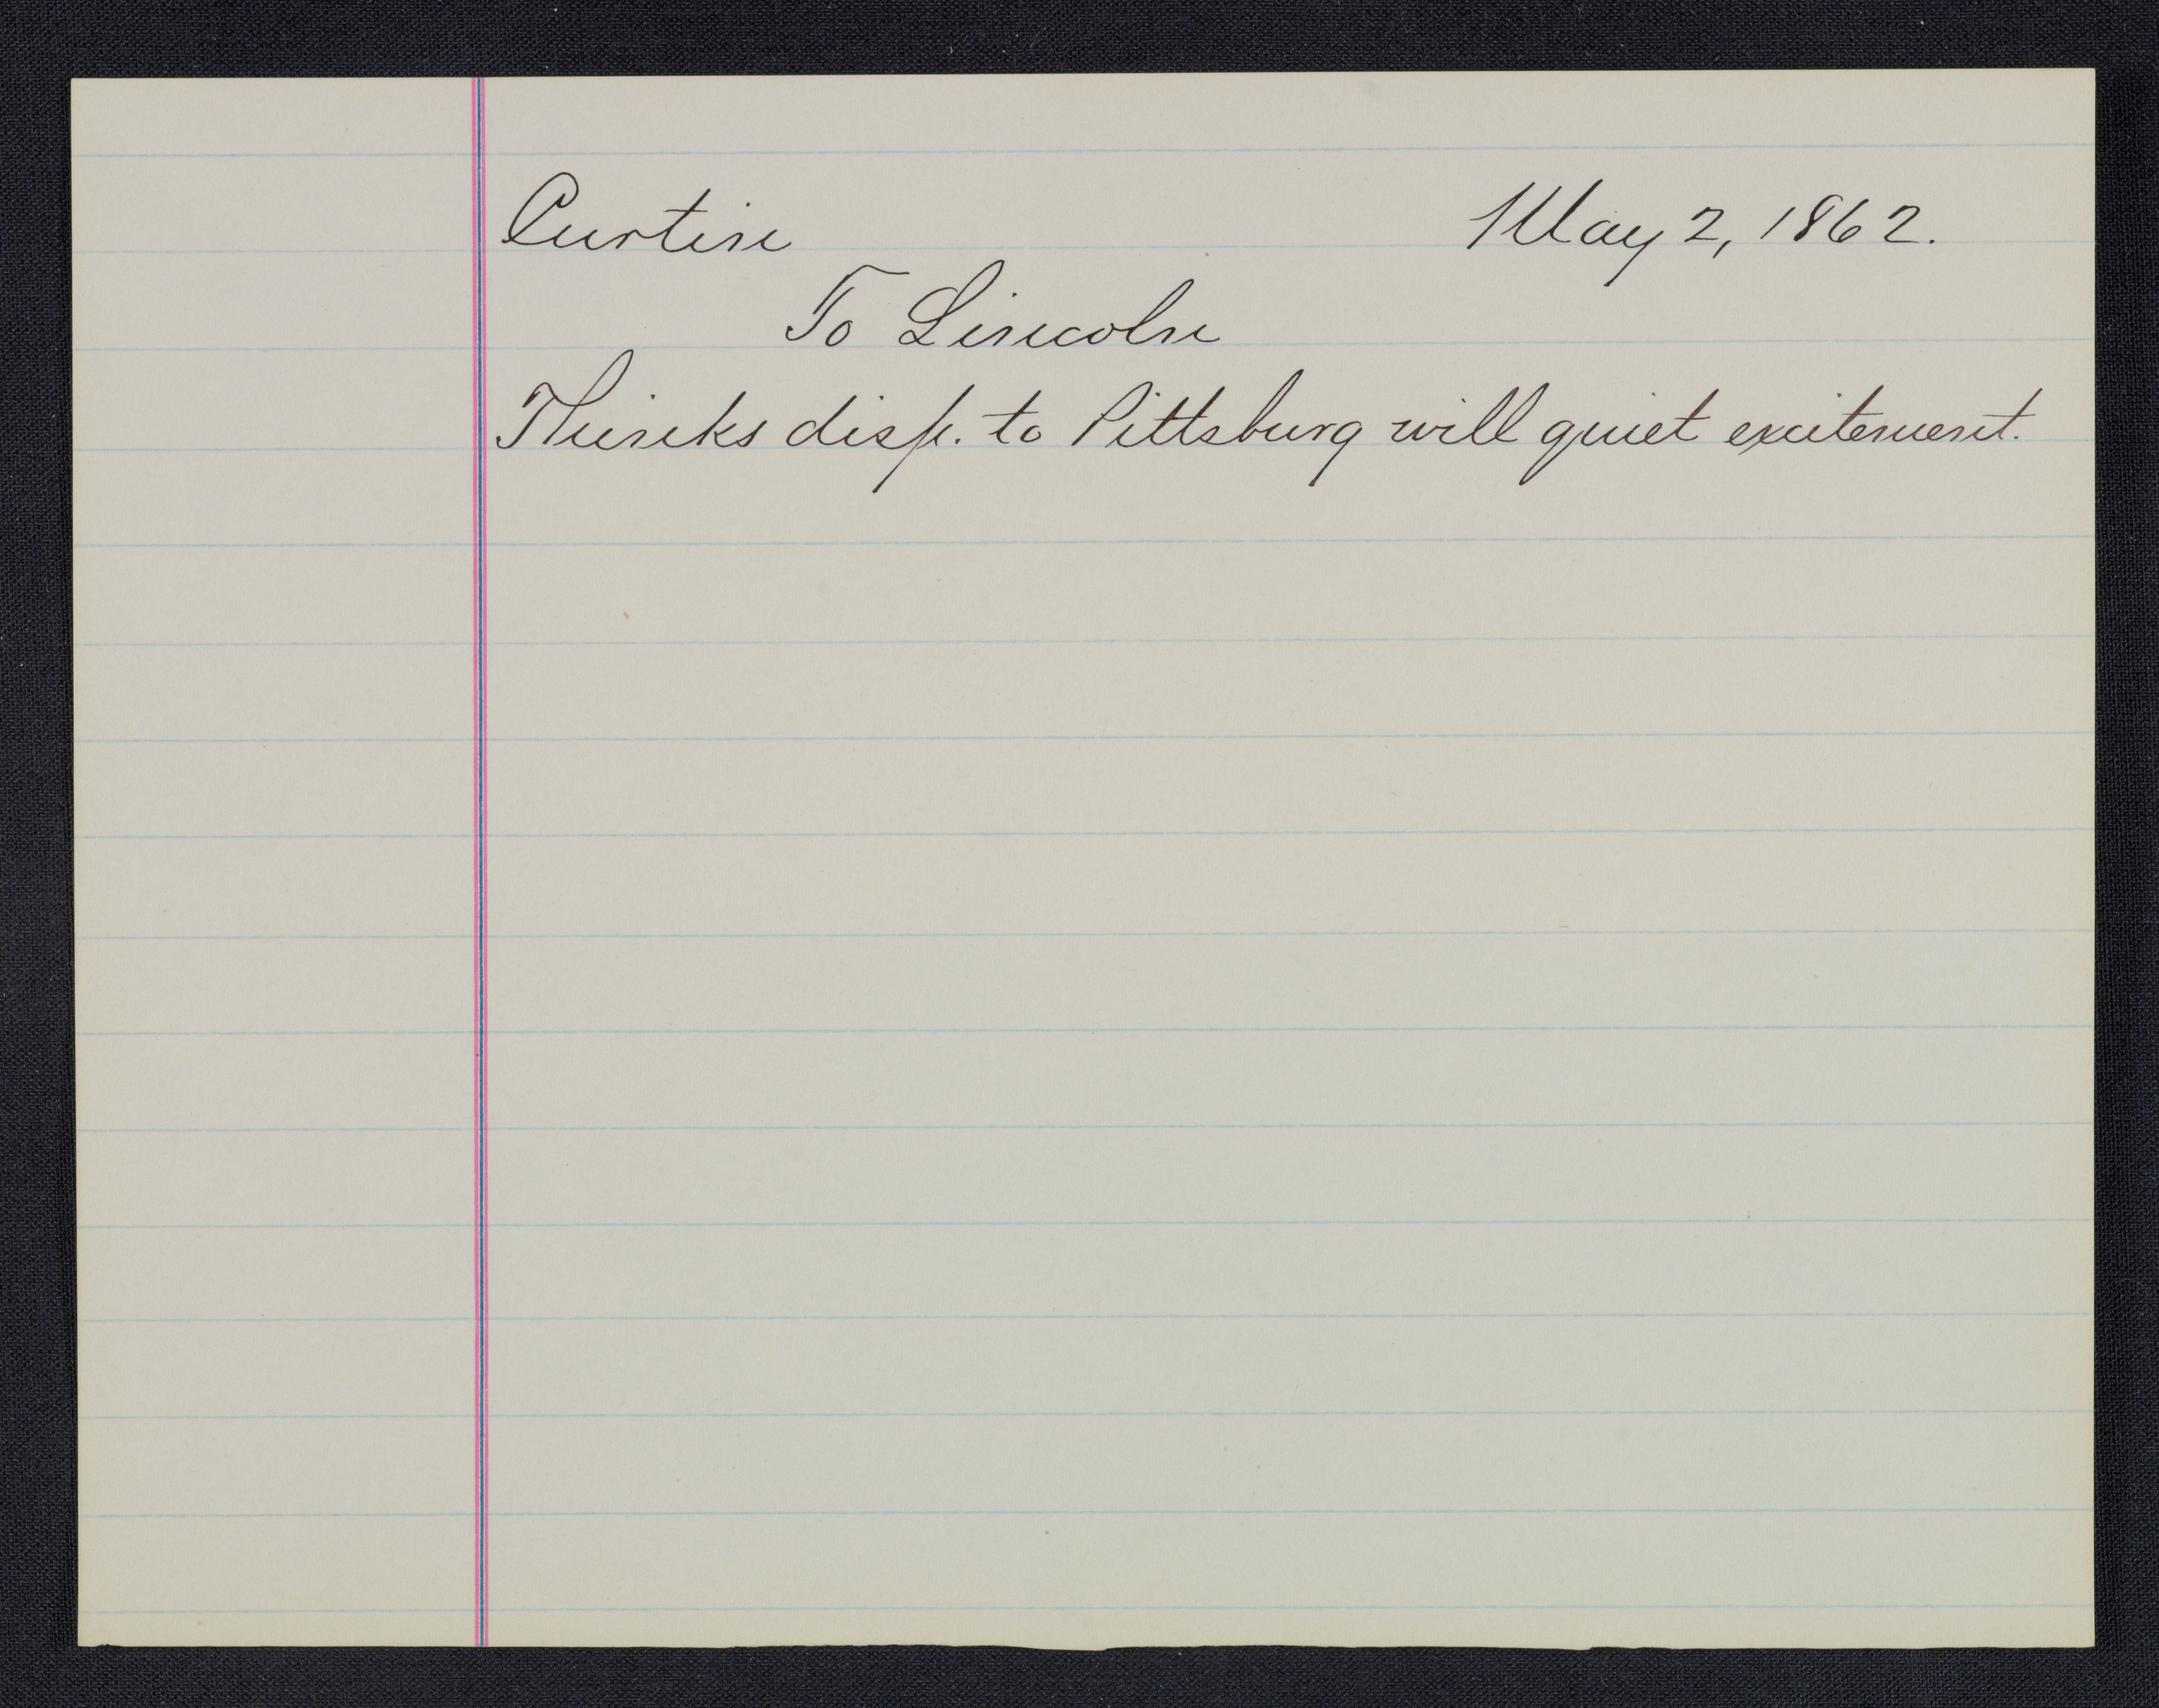 Curtin May 2, 1862.
To Lincoln
Thinks disp. to Pittsburg will quiet excitement.